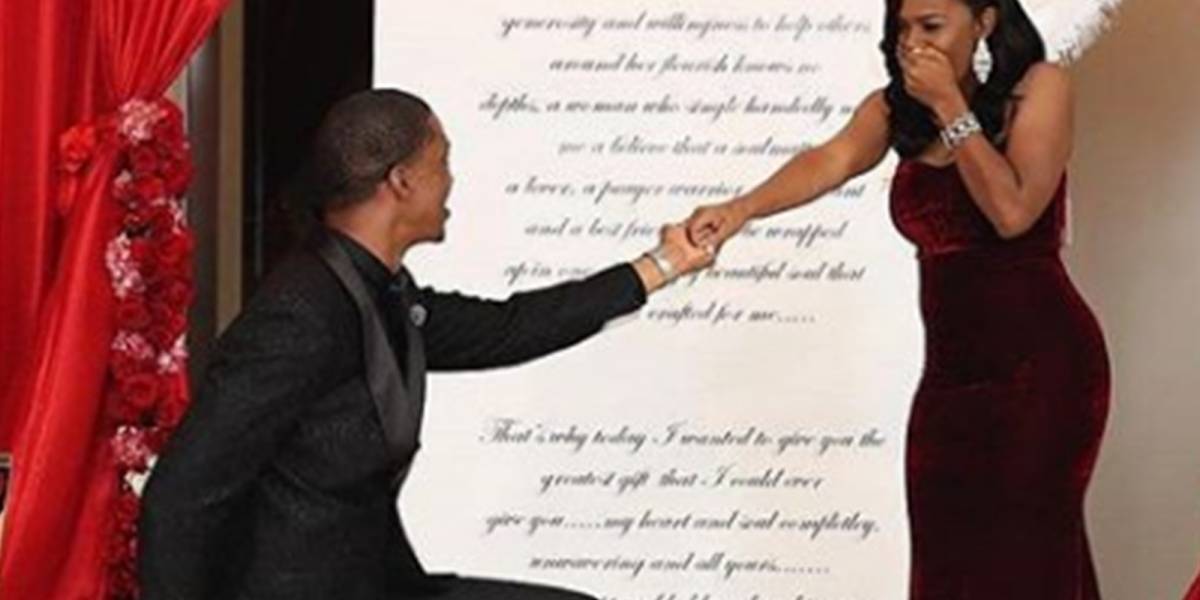 generosity and willingness to help others
around her flourish knows no
depths, a woman who single handedly
me a believe that a soul
a lover, a prayer warrior
and a best wrapped
up in one beautiful soul that
crafted for me.....
That's why today I wanted to give you the
greatest gift that I could ever
give you.....my heart and soul completley,
unwavering and all yours.......